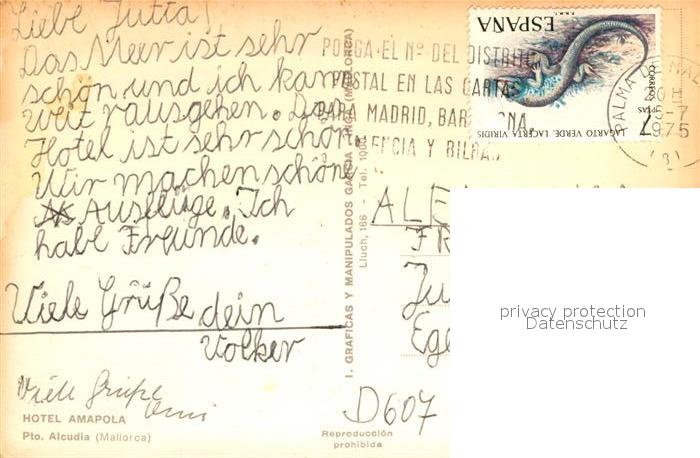 Liebe Jutta!
Das Meer ist sehr
schön und ich kann
weit rausgehen. Das
Hotel ist sehr schön.
Wir machen schöne
Ausflüge. Ich
habe Freunde.
Viele Grüße dein
Volker
Viele Grüße
HOTEL AMAPOLA
Pto. Alcudia (Mallorca)
I. GRAFICAS Y MANIPULADOS GARCIA
Lluch, 166 - Tel.
ESPAÑA
CORREOS
7 PTAS
LAGARTO VERDE LACERTA VIRIDIS
PONGA EL Nº DEL DISTRITO
POSTAL EN LAS CARTAS
PARA MADRID, BARCELONA
VALENCIA Y BILBAO
PALMA DE MAL
1975
ALE
FR
Ju
Ege
D607
Reproducción
prohibida
privacy protection
Datenschutz